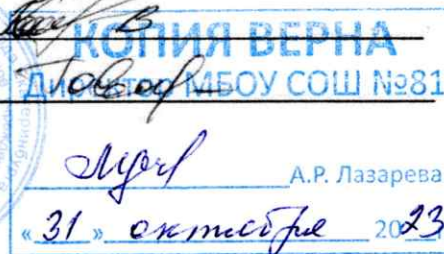 КОПИЯ ВЕРНА
Директор МБОУ СОШ №81
А.Р. Лазарева
«31» октября 2023